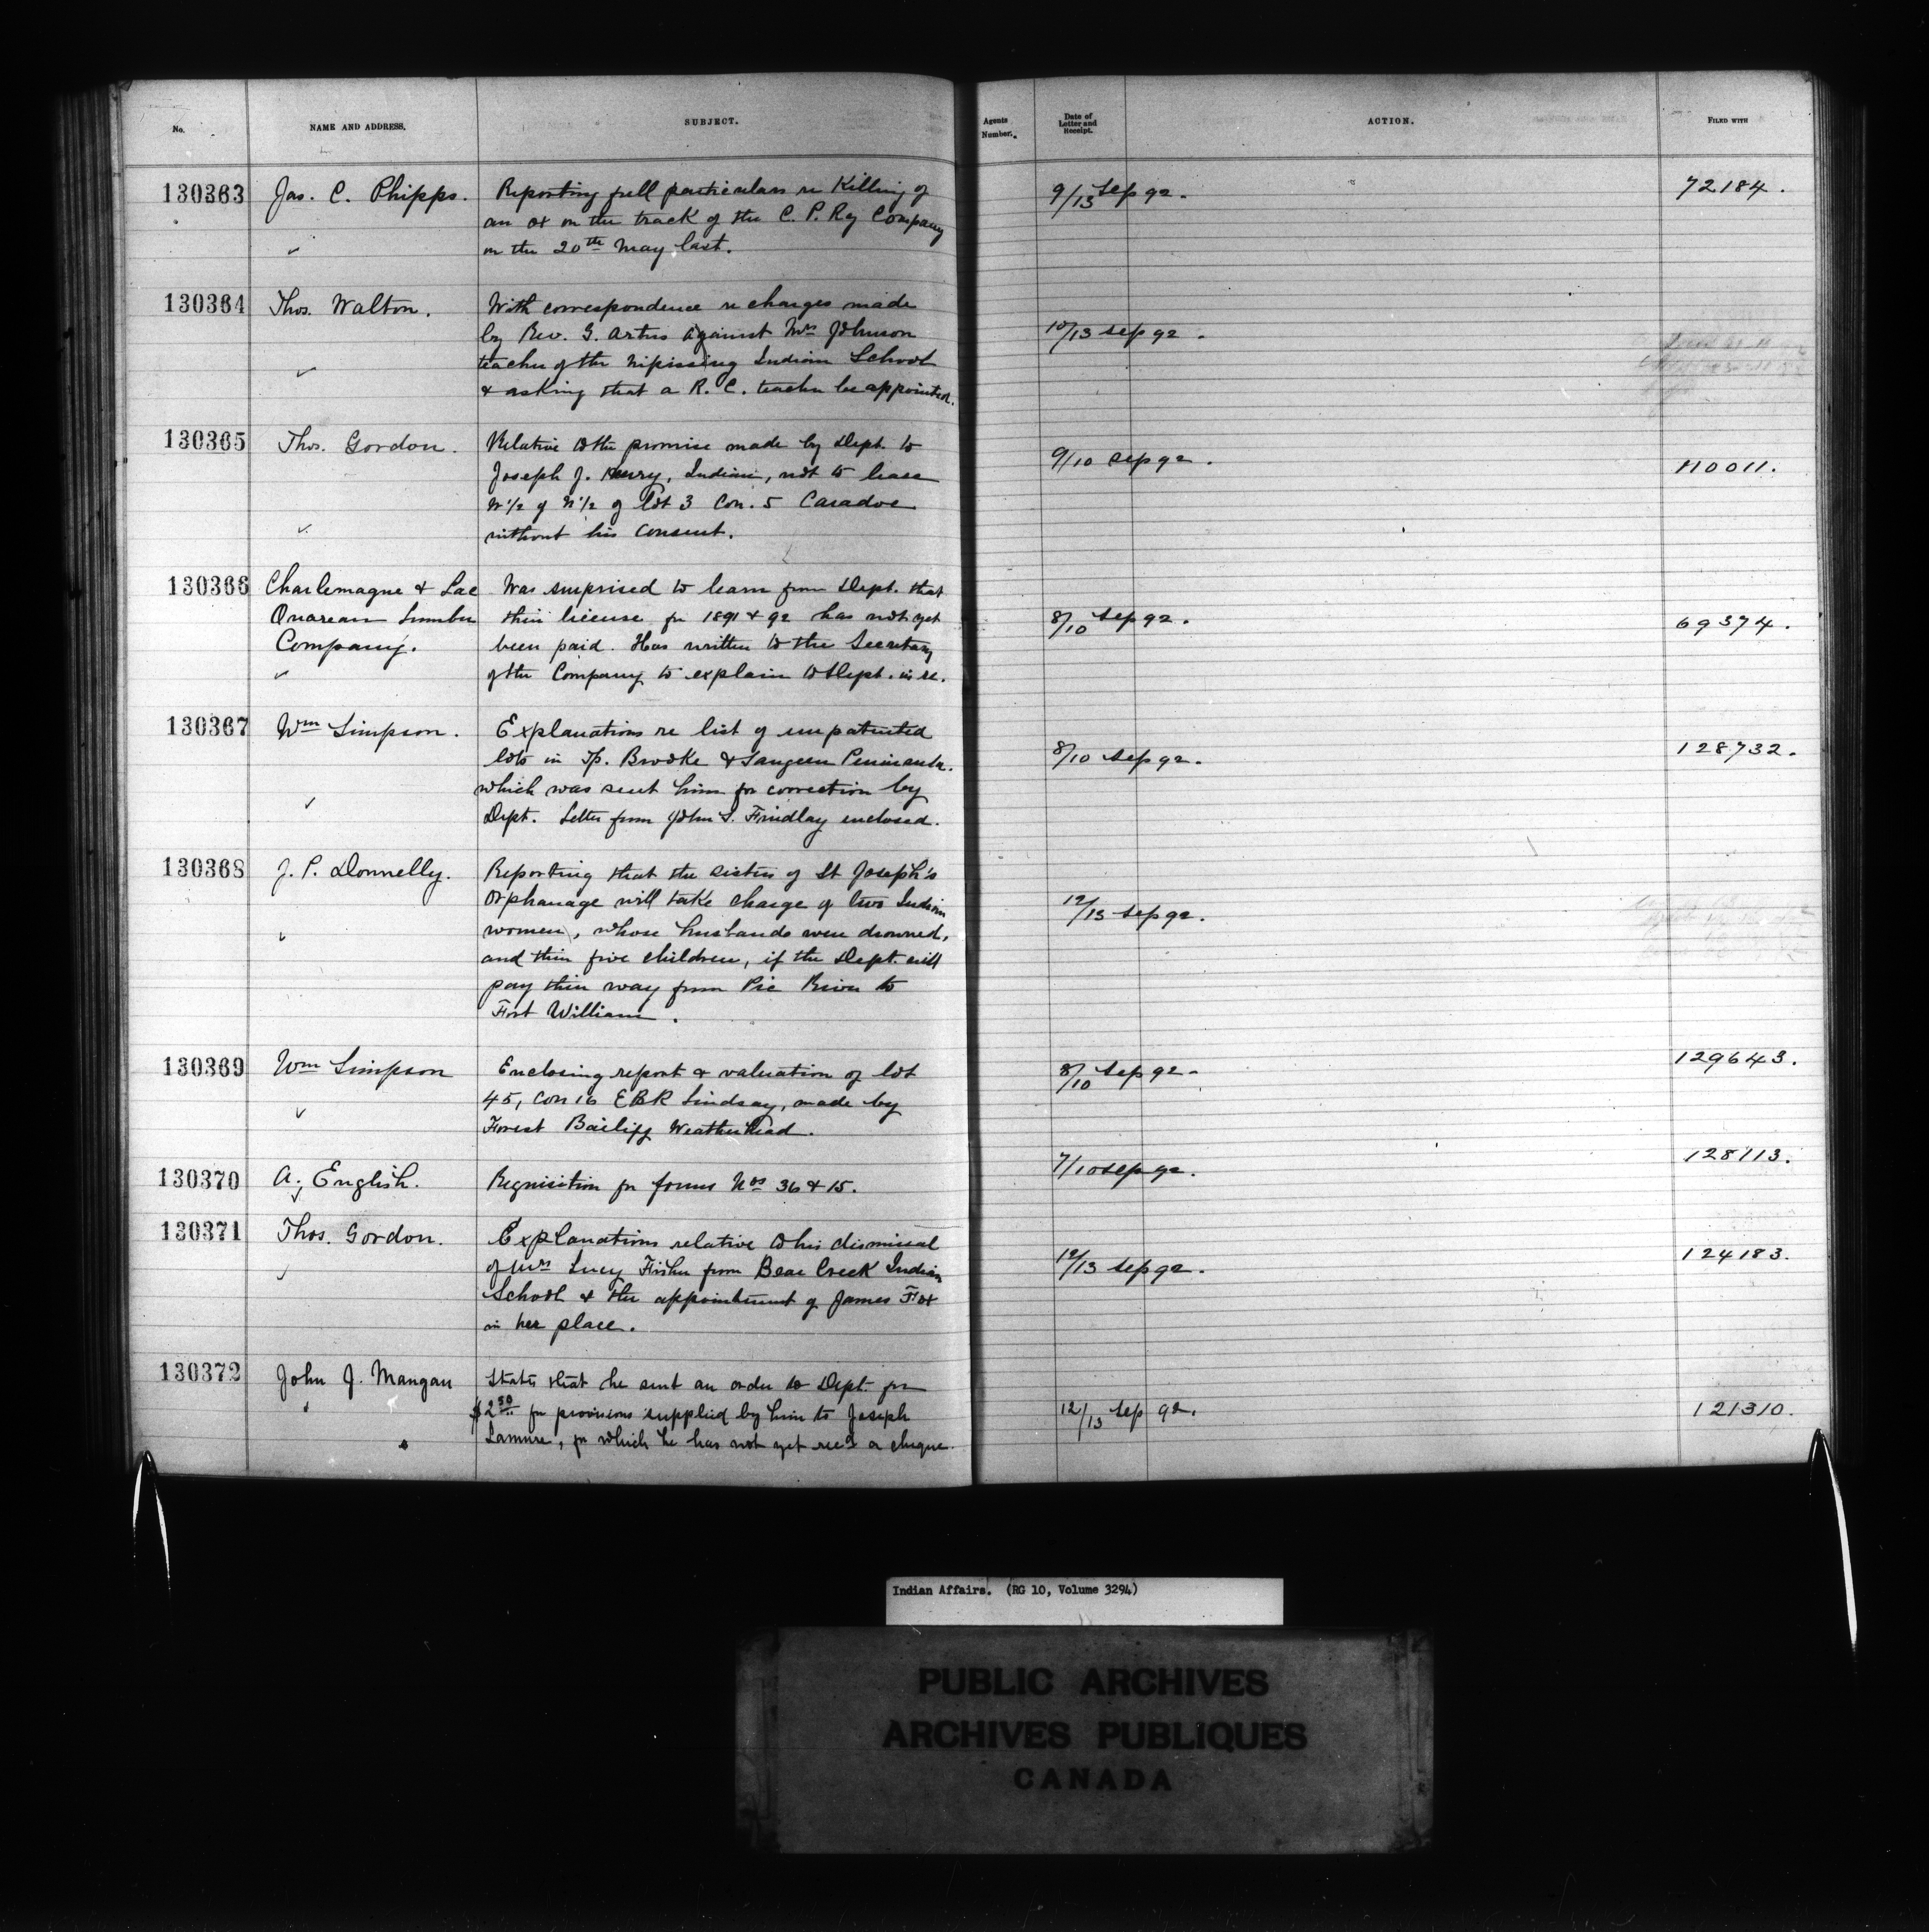 No.
NAME AND ADDRESS.
SUBJECT.
Agents Number.
Date of Letter and Receipt.
ACTION.
FILED WITH
130363 Jas. C. Phipps. Reporting full particulars re Killing of
an ox on the track of the C. P. Ry Company
on the 20th May last.
9/13 Sep 92. 72184.
130364 Thos. Walton. With correspondence re charges made
by Rev. G. Artus against Mrs Johnson
teacher of the Nipissing Indian School
& asking that a R. C. teacher be appointed.
10/13 Sep 92.
130365 Thos. Gordon. Relative to the promise made by Dept. to
Joseph J. Henry, Indian, not to lease
N 1/2 of N 1/2 of lot 3 Con. 5 Caradoc
without his consent.
9/10 Sep 92. 110011.
130366 Charlemagne & Lac Was surprised to learn from Dept. that
Ouareau Lumber their license for 1891 & 92 has not yet
Company. been paid. Has written to the Secretary
of the Company to explain to Dept. in re.
8/10 Sep 92. 69374.
130367 Wm Simpson. Explanations re list of unpatented
lots in Tp. Brooke & Saugeen Peninsula.
which was sent him for correction by
Dept. Letter from John S. Findlay enclosed.
8/10 Sep 92. 128732.
130368 J. P. Donnelly. Reporting that the sisters of St Joseph's
Orphanage will take charge of two Indian
women, whose husbands were drowned,
and their five children, if the Dept. will
pay their way from Pic River to
Fort William.
12/13 Sep 92.
130369 Wm Simpson Enclosing report & valuation of lot
45, Con 16 EBR Lindsay, made by
Forest Bailiff Weatherhead.
8/10 Sep 92. 129643.
130370 A. English. Requisition for forms Nos 36 & 15.
7/10 Sep 92. 128113.
130371 Thos. Gordon. Explanations relative to his dismissal
of Mrs Lucy Fisher from Bear Creek Indian
School & the appointment of James Fox
in her place.
12/13 Sep 92. 124183.
130372 John J. Mangan States that he sent an order to Dept. for
$2.50 for provisions supplied by him to Joseph
Lamure, for which he has not yet recd a cheque.
12/13 Sep 92. 121310.
Indian Affairs. (RG 10, Volume 3294)
PUBLIC ARCHIVES
ARCHIVES PUBLIQUES
CANADA